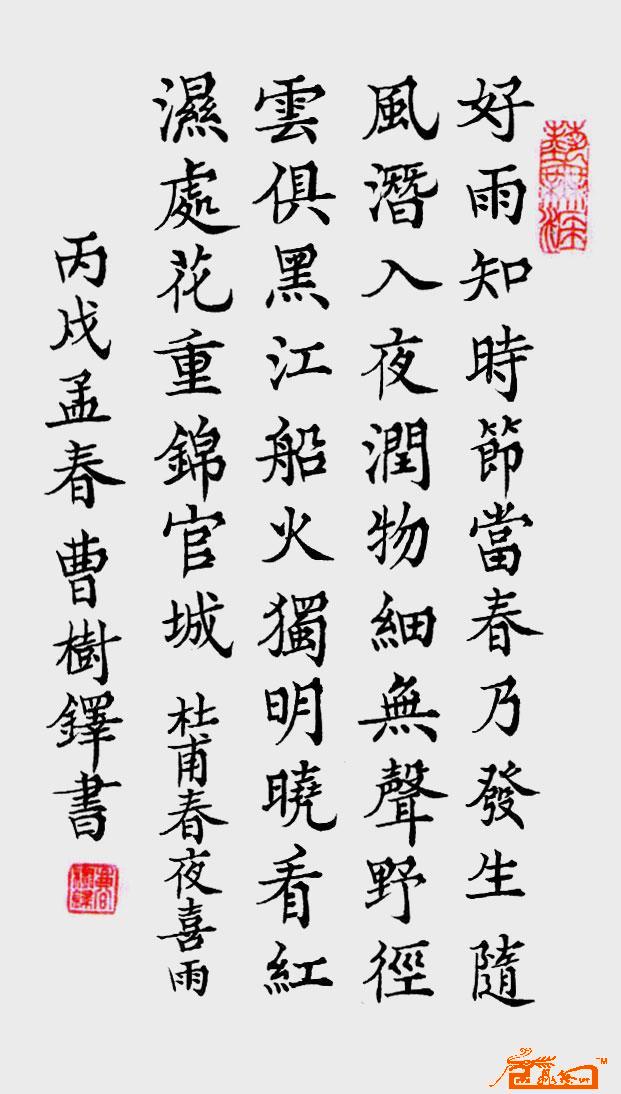 好雨知時節當春乃發生隨
風潛入夜潤物細無聲野徑
雲俱黑江船火獨明曉看紅
濕處花重錦官城 杜甫春夜喜雨
丙戌孟春曹樹鐸書